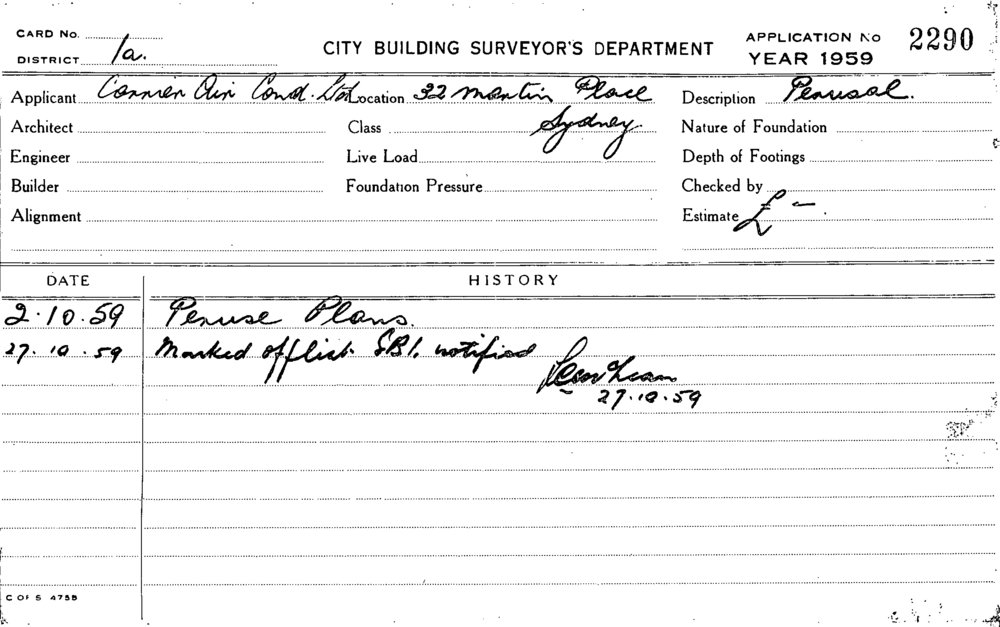 CARD No.
DISTRICT 1a.
CITY BUILDING SURVEYOR'S DEPARTMENT
APPLICATION No 2290
YEAR 1959
Applicant Carrier Air Cond. Ltd Location 32 Martin Place Description Perusal.
Architect Class Sydney. Nature of Foundation
Engineer Live Load Depth of Footings
Builder Foundation Pressure Checked by
Alignment Estimate £ -
DATE HISTORY
2.10.59 Peruse Plans.
27.10.59 Marked off list. SBI. notified
27.10.59
C OF S 475B